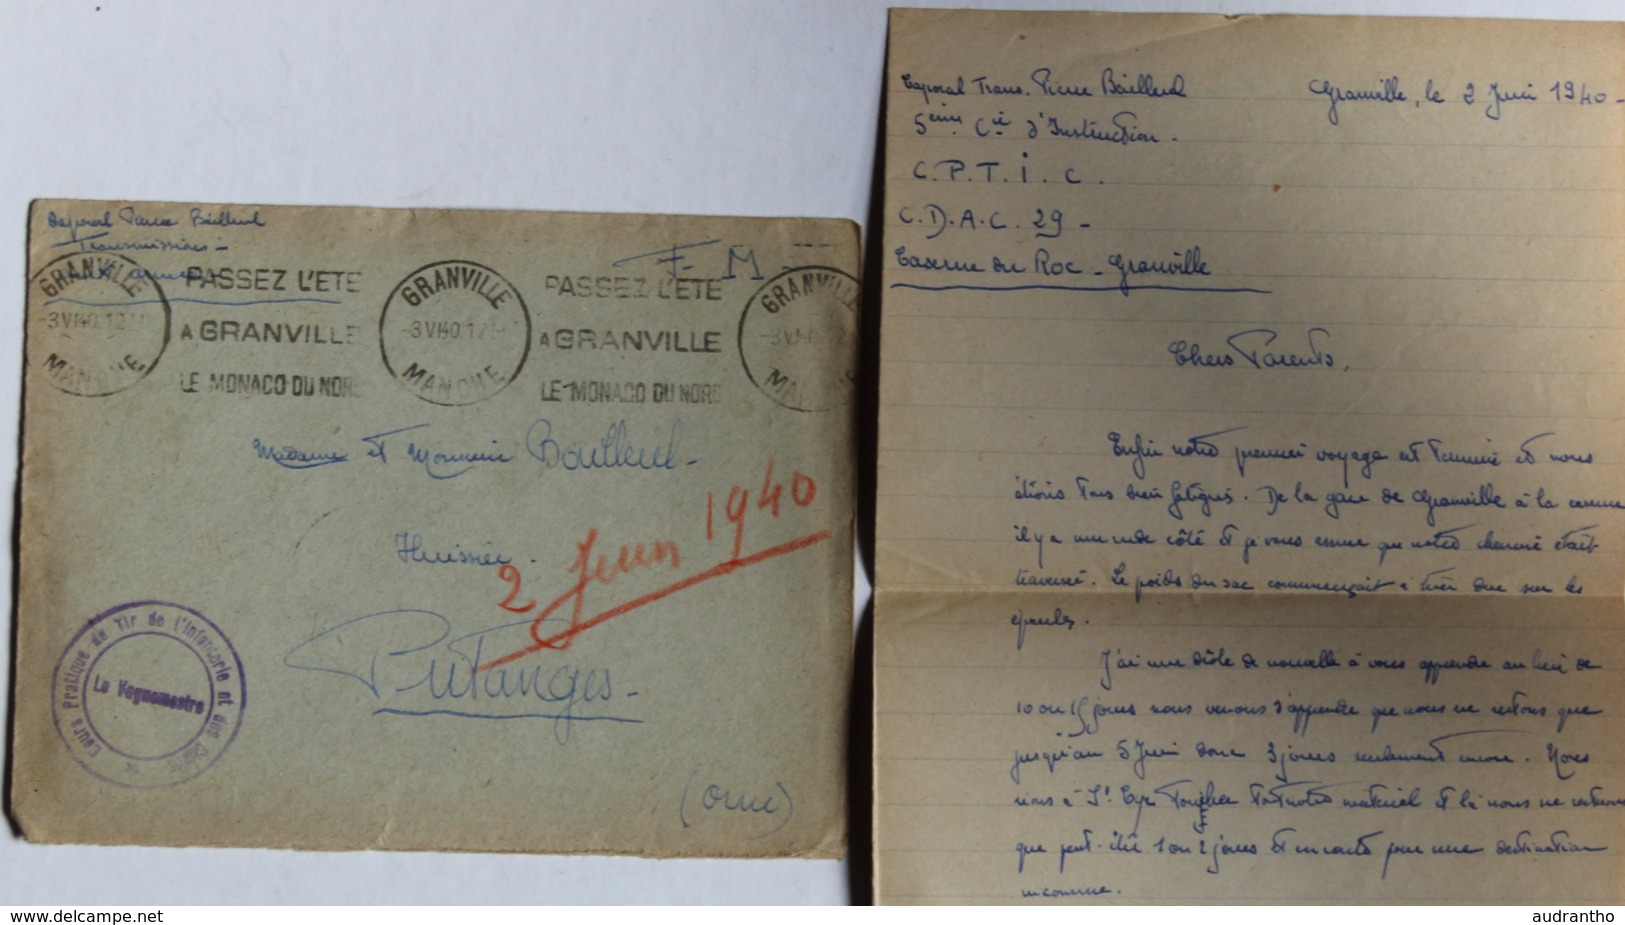 Caporal Pierre Bailleul
Transmissions -
F. M.
GRANVILLE
MANCHE
-3 VI 40. 12
PASSEZ L'ETE
A GRANVILLE
LE MONACO DU NORD
GRANVILLE
MANCHE
-3 VI 40. 12
PASSEZ L'ETE
A GRANVILLE
LE MONACO DU NORD
GRANVILLE
Madame et Monsieur Bailleul -
Huissier.
2 Juin 1940
Putanges -
(Orne)
Cours Pratique de Tir de l'Infanterie et des Chars
Le Vaguemestre
Caporal Trans. Pierre Bailleul
Granville, le 2 Juin 1940 -
5ème Cie d'Instruction -
C. P. T. i. C.
C. D. A. C. 29 -
Caserne du Roc - Granville
Chers Parents,
Enfin notre premier voyage est terminé et nous
étions tous bien fatigués. De la gare de Granville à la caserne
il y a une rude côté et je vous assure que notre chemise était
traversé. Le poids du sac commençait à tirer dur sur les
épaules.
J'ai une drôle de nouvelle à vous apprendre au lieu de
10 ou 15 jours nous venons d'apprendre que nous ne restons que
jusqu'au 5 Juin donc 3 jours seulement encore. Nous
irons à St Cyr Toucher tout notre matériel et là nous ne resterons
que peut-être 1 ou 2 jours et en route pour une destination
inconnue.
www.delcampe.net
audrantho